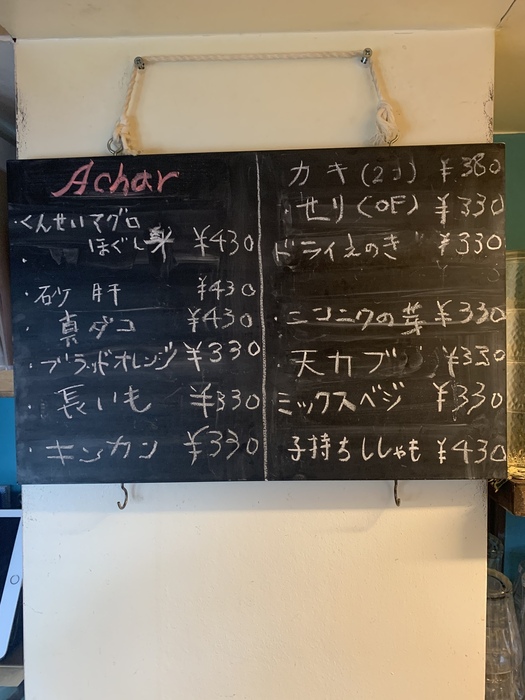 Achar
・くんせいマグロ
ほぐし身 ¥430
・
・砂肝 ¥430
・真ダコ ¥430
・ブラッドオレンジ ¥330
・長いも ¥330
・キンカン ¥330
カキ(2コ) ¥380
・せり(OF) ¥330
ドライえのき ¥330
・ニンニクの芽 ¥330
・天カブ ¥330
ミックスベジ ¥330
子持ちししゃも ¥430